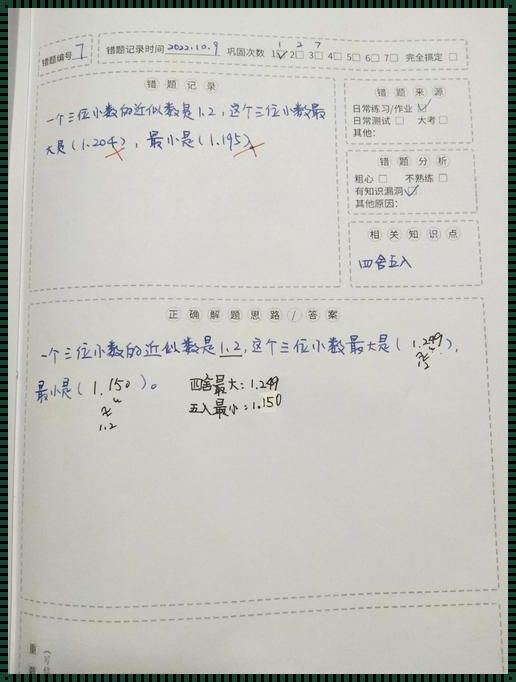 错题编号 7
错题记录时间 2022.10.9 巩固次数 1☑ 2□ 3□ 4□ 5□ 6□ 7□ 完全搞定 □
1 2 7
错题记录
一个三位小数的近似数是1.2，这个三位小数最
大是（1.204），最小是（1.195）。
错题来源
日常练习/作业 ☑
日常测试 □ 大考 □
其他：
错题分析
粗心 □ 不熟练 □
有知识漏洞 ☑
其他原因：
相关知识点
四舍五入
正确解题思路/答案
一个三位小数的近似数是1.2，这个三位小数最大是（1.249），
≈
1.2
最小是（1.150）。
≈
1.2
四舍最大：1.249
五入最小：1.150